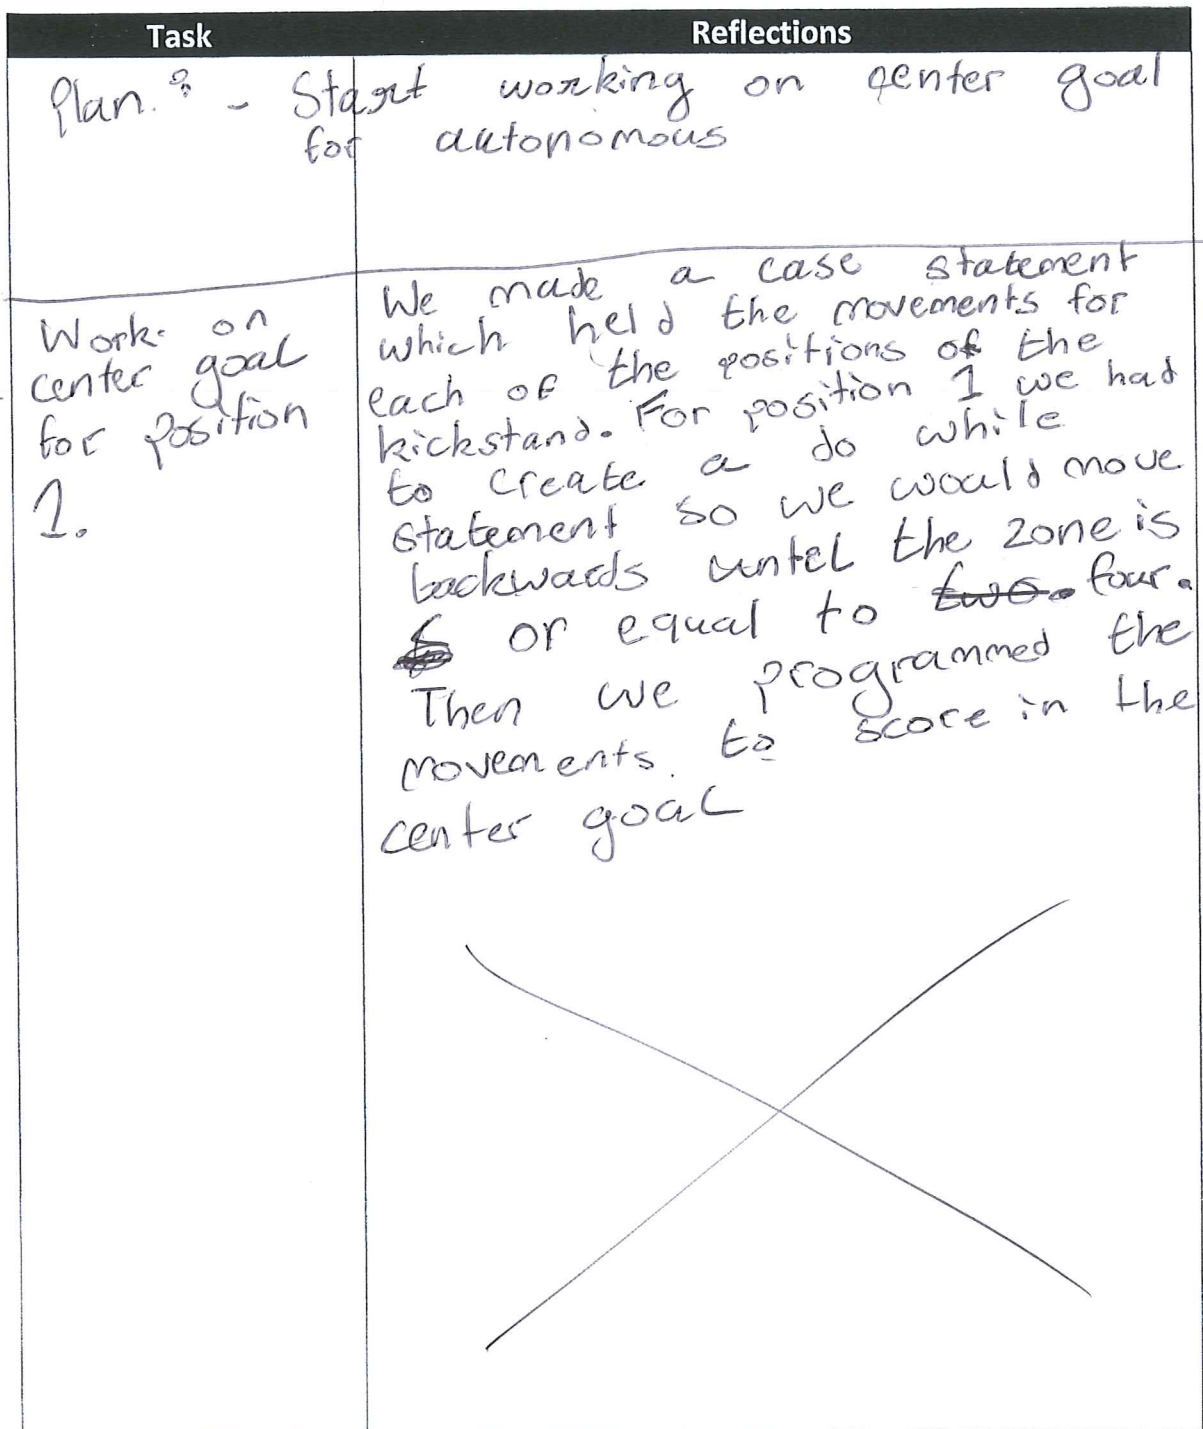 Task
Reflections
Plan: - Start working on center goal
for autonomous
Work on
center goal
for position
1.
We made a case statement
which held the movements for
each of the positions of the
kickstand. For position 1 we had
to create a do while
statement so we would move
backwards until the zone is
or equal to two. four.
Then we programmed the
movements to score in the
center goal